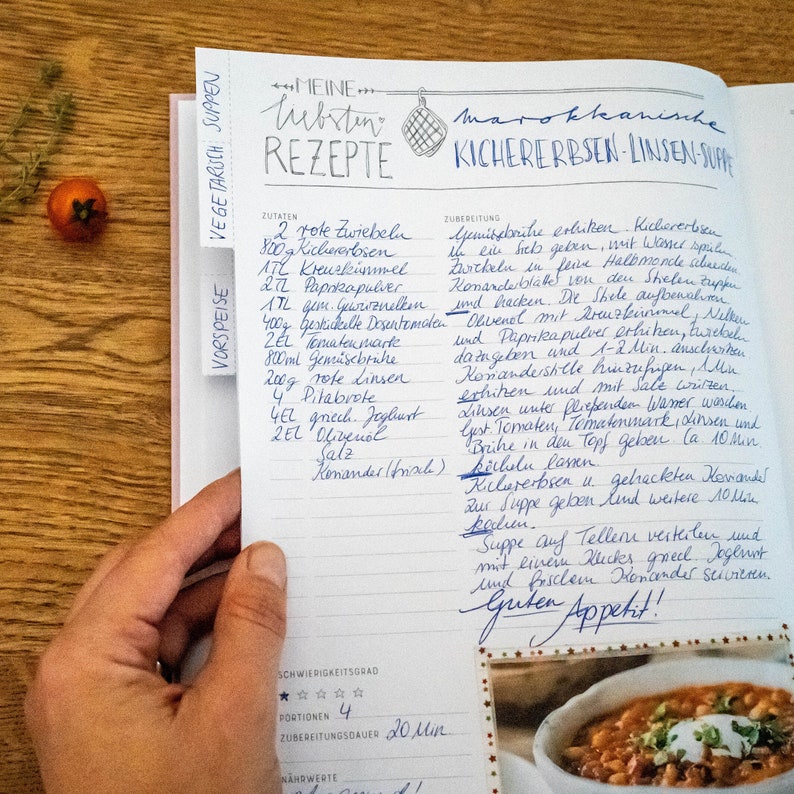 VEGETARISCH SUPPEN
VORSPEISE
MEINE
liebsten
REZEPTE
Marokkanische
KICHERERBSEN-LINSEN-SUPPE
ZUTATEN
2 rote Zwiebeln
800g Kichererbsen
1TL Kreuzkümmel
2TL Paprikapulver
1TL gem. Gewürznelken
400g gestückelte Dosentomaten
2EL Tomatenmark
800ml Gemüsebrühe
200g rote Linsen
4 Pitabrote
4EL griech. Joghurt
2EL Olivenöl
Salz
Koriander (frisch)
ZUBEREITUNG
Gemüsebrühe erhitzen. Kichererbsen
in ein Sieb geben, mit Wasser spülen.
Zwiebeln in feine Halbmonde schneiden.
Korianderblätter von den Stielen zupfen
und hacken. Die Stiele aufbewahren.
Olivenöl mit Kreuzkümmel, Nelken
und Paprikapulver erhitzen, Zwiebeln
dazugeben und 1-2 Min. anschwitzen
Korianderstiele hinzufügen, 1 Min
erhitzen und mit Salz würzen.
Linsen unter fließendem Wasser waschen
Gest. Tomaten, Tomatenmark, Linsen und
Brühe in den Topf geben. Ca. 10 Min.
köcheln lassen
Kichererbsen u. gehackten Koriander
zur Suppe geben und weitere 10 Min.
kochen.
Suppe auf Tellern verteilen und
mit einem Klecks griech. Joghurt
und frischem Koriander servieren.
Guten Appetit!
SCHWIERIGKEITSGRAD
PORTIONEN 4
ZUBEREITUNGSDAUER 20 Min.
NÄHRWERTE